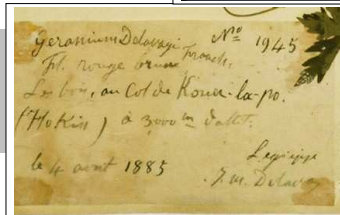 Geranium Delavayi Franch. No 1945
Fl. rouge brun
Les bois, au Col de Koua-la-po.
(Hokin) à 3000 m d'alt.
le 4 aout 1885
J. M. Delavay